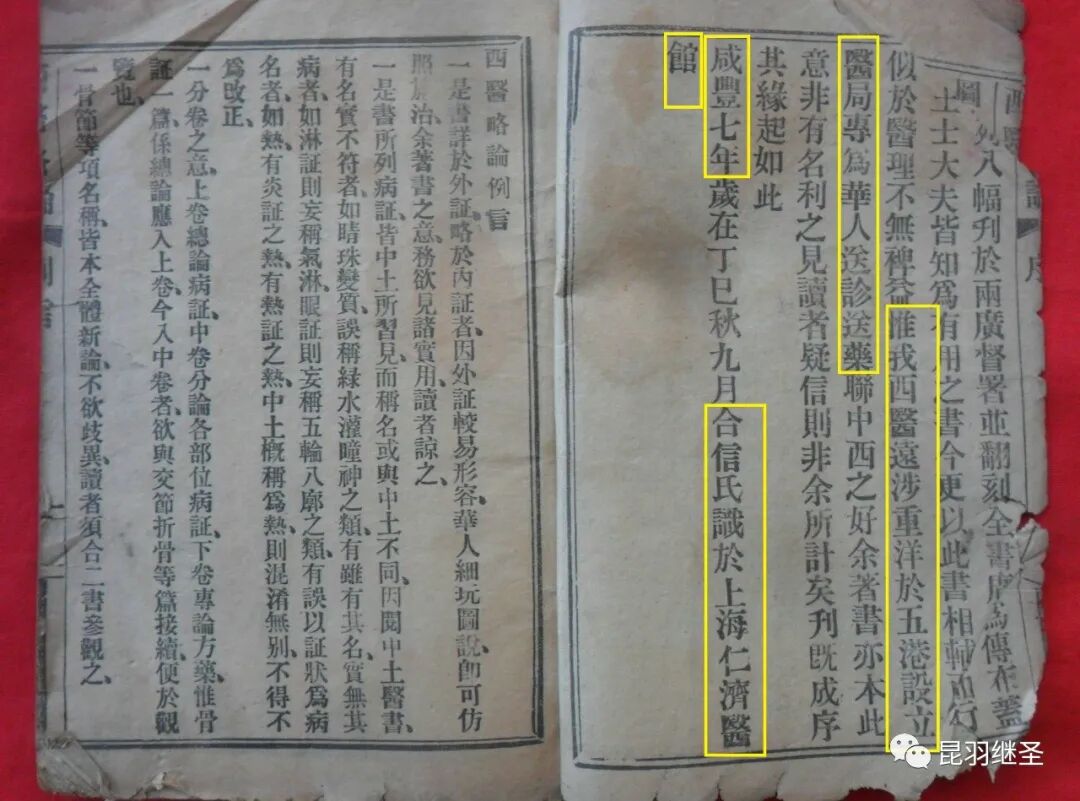 列八幅刋於兩廣督署並翻刻全書廣爲傳布蓋
士士大夫皆知爲有用之書今更以此書相輔而行
似於醫理不無裨益惟我西醫遠涉重洋於五港設立
醫局專爲華人送診送藥聯中西之好余著書亦本此
意非有名利之見讀者疑信則非余所計矣刋旣成序
其緣起如此
咸豐七年歲在丁巳秋九月合信氏識於上海仁濟醫
館
西醫略論例言
一是書詳於外証略於內証者、因外証較易形容、華人細玩圖說、卽可仿
照施治、余著書之意、務欲見諸實用、讀者諒之、
一是書所列病証、皆中土所習見、而稱名或與中土不同、因閱中土醫書、
有名實不符者、如睛珠變質、誤稱綠水灌瞳神之類、有雖有其名、實無其
病者、如淋証則妄稱氣淋、眼証則妄稱五輪八廓之類、有誤以証狀爲病
名者、如熱、有炎証之熱、有熱証之熱、中土槪稱爲熱、則混淆無別、不得不
爲改正、
一分卷之意、上卷總論病証、中卷分論各部位病証、下卷專論方藥、惟骨
証一篇、係總論應入上卷、今入中卷者、欲與交節折骨等篇接續、便於觀
覽也、
一骨節等項名稱、皆本全體新論、不欲歧異、讀者須合二書參觀之、
昆羽继圣